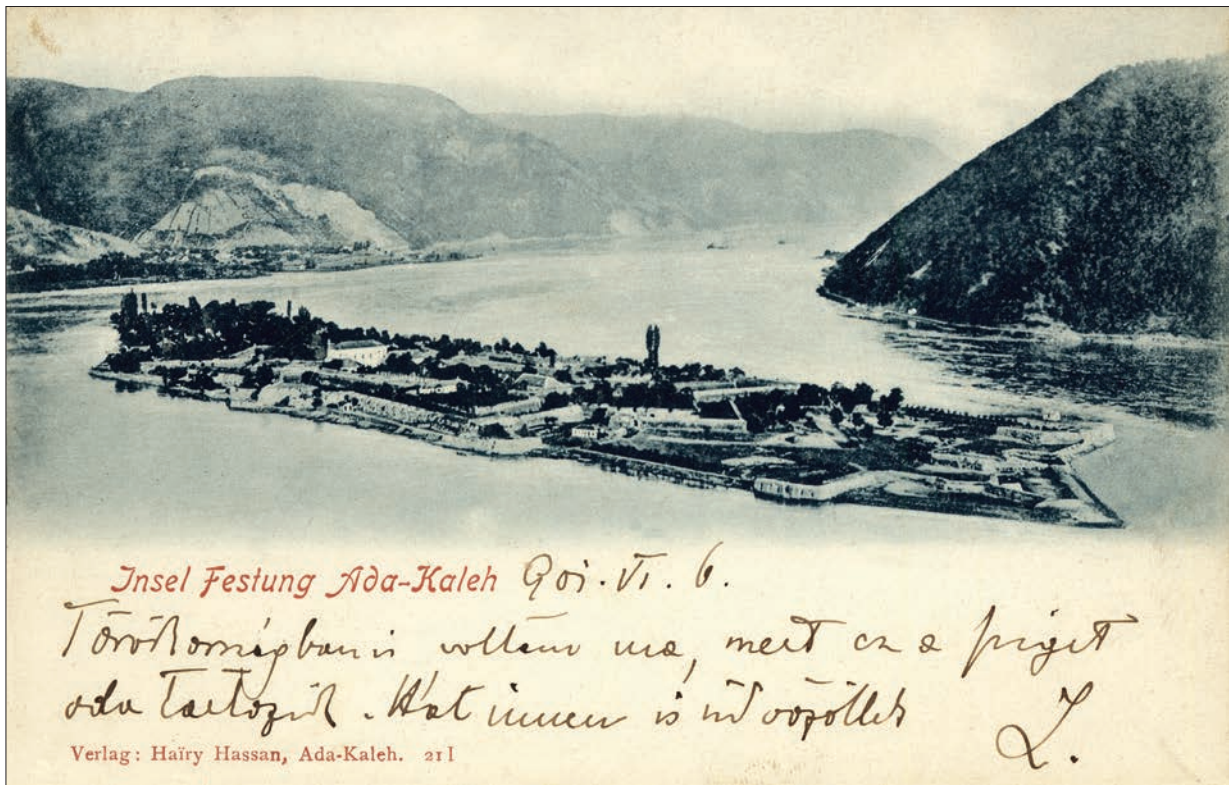 Insel Festung Ada-Kaleh 901. VI. 6.
Törökországban is voltam ma, mert ez a sziget
oda tartozik. Hát innen is üdvözöllek
L.
Verlag: Haïry Hassan, Ada-Kaleh. 211